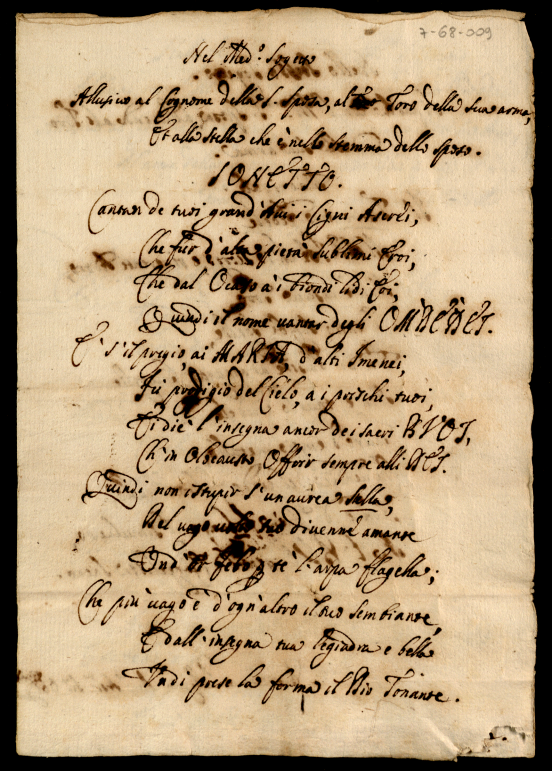 7-68-009
Nel Med.º Sogeto
Allusivo al Cognome della S. Sposa, al Toro della sua arma,
Et alla stella che è nello stemma dello sposo.
SONETTO.
Cantan de tuoi grand'Aui i Cigni Ascrei,
Che fur d'alta pietà sublimi Eroi,
Che dal Ocaso a i biondi lidi Eoi,
Quindi il nome uantar degli OMBEBEI.
E s'il pregio, ai MARIA, d'alti Imenei,
Fu prodigio del Cielo, a i prischi tuoi,
Ti diè l'insegna ancor dei sacri BUOI,
Ch'in Olocausto Offrir sempre alli DEI.
Quindi non istupir s'un aurea stella,
Del uago uolto tuo diuenne amante
Ond' Febo p te l'arpa flagella;
Che più uago è d'ogn'altro il tuo sembiante,
E dall'insegna tua legiadra e bella
Indi prese la forma il Dio Tonante.